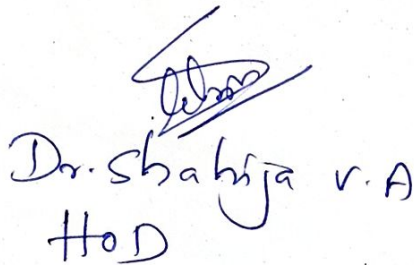 Dr. Shahija V. A
HOD